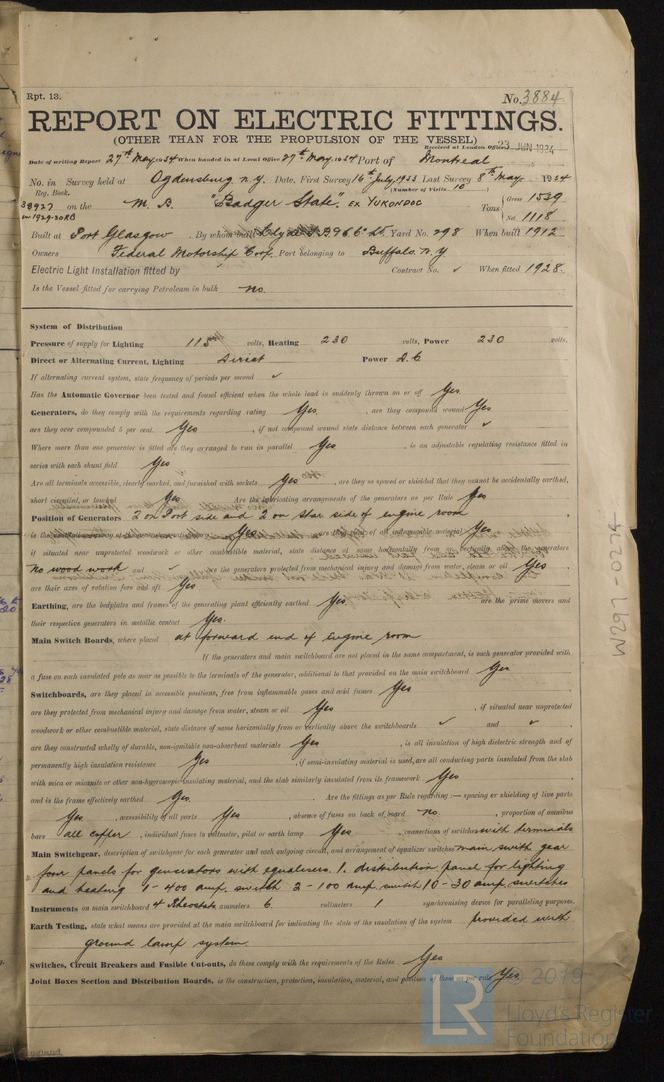 Rpt. 13.
No. 3884
REPORT ON ELECTRIC FITTINGS.
(OTHER THAN FOR THE PROPULSION OF THE VESSEL)
Received at London Office 23 JUN 1934
Date of writing Report 27th May 1934 When handed in at Local Office 27th May 1934 Port of Montreal
No. in Survey held at Ogdensburg, N.Y. Date, First Survey 16th July 1933 Last Survey 8th May 1934
Reg. Book. (Number of Visits 10)
38927 on the M. S. "Badger State" ex YUKONDOC Tons Gross 1539
in 1929-30RB Net 1118
Built at Port Glasgow By whom built Clyde S.B. & E. Co Lt. Yard No. 298 When built 1912
Owners Federal Motorship Corp. Port belonging to Buffalo. N.Y
Electric Light Installation fitted by Contract No. ✓ When fitted 1928.
Is the Vessel fitted for carrying Petroleum in bulk no.
System of Distribution
Pressure of supply for Lighting 115 volts, Heating 230 volts, Power 230 volts.
Direct or Alternating Current, Lighting Direct Power D.C
If alternating current system, state frequency of periods per second ✓
Has the Automatic Governor been tested and found efficient when the whole load is suddenly thrown on or off Yes
Generators, do they comply with the requirements regarding rating Yes, are they compound wound Yes
are they over compounded 5 per cent. Yes, if not compound wound state distance between each generator ✓
Where more than one generator is fitted are they arranged to run in parallel Yes, is an adjustable regulating resistance fitted in
series with each shunt field Yes
Are all terminals accessible, clearly marked, and furnished with sockets Yes, are they so spaced or shielded that they cannot be accidentally earthed,
short circuited, or touched Yes Are the lubricating arrangements of the generators as per Rule Yes
Position of Generators 2 on Port side and 2 on Star side of engine room
is the Yes are the of all inflammable material Yes
if situated near unprotected woodwork or other combustible material, state distance of same horizontally from or vertically above the generators
no wood work and ✓ are the generators protected from mechanical injury and damage from water, steam or oil Yes
are their axes of rotation fore and aft Yes
Earthing, are the bedplates and frames of the generating plant efficiently earthed Yes are the prime movers and
their respective generators in metallic contact Yes.
Main Switch Boards, where placed at forward end of Engine room
If the generators and main switchboard are not placed in the same compartment, is each generator provided with
a fuse on each insulated pole as near as possible to the terminals of the generator, additional to that provided on the main switchboard Yes
Switchboards, are they placed in accessible positions, free from inflammable gases and acid fumes Yes
are they protected from mechanical injury and damage from water, steam or oil Yes, if situated near unprotected
woodwork or other combustible material, state distance of same horizontally from or vertically above the switchboards ✓ and ✓,
are they constructed wholly of durable, non-ignitable non-absorbent materials Yes, is all insulation of high dielectric strength and of
permanently high insulation resistance Yes, if semi-insulating material is used, are all conducting parts insulated from the slab
with mica or micanite or other non-hygroscopic insulating material, and the slab similarly insulated from its framework Yes,
and is the frame effectively earthed Yes. Are the fittings as per Rule regarding :— spacing or shielding of live parts
Yes, accessibility of all parts Yes, absence of fuses on back of board no., proportion of omnibus
bars all copper, individual fuses to voltmeter, pilot or earth lamp Yes, connections of switches with terminals
Main Switchgear, description of switchgear for each generator and each outgoing circuit, and arrangement of equalizer switches main switch gear
four panels for generators with equalisers. 1. distribution panel for lighting
and heating 1 - 400 amp. switch 2 - 100 amp. switch 10 - 30 amp switches
Instruments on main switchboard 4 Rheostats ammeters 6 voltmeters 1 synchronising device for paralleling purposes.
Earth Testing, state what means are provided at the main switchboard for indicating the state of the insulation of the system provided with
ground lamp system.
Switches, Circuit Breakers and Fusible Cut-outs, do these comply with the requirements of the Rules Yes
Joint Boxes Section and Distribution Boards, is the construction, protection, insulation, material, and position of these as per rule Yes
W291-0274
© 2019
LR
Lloyd's Register
Foundation